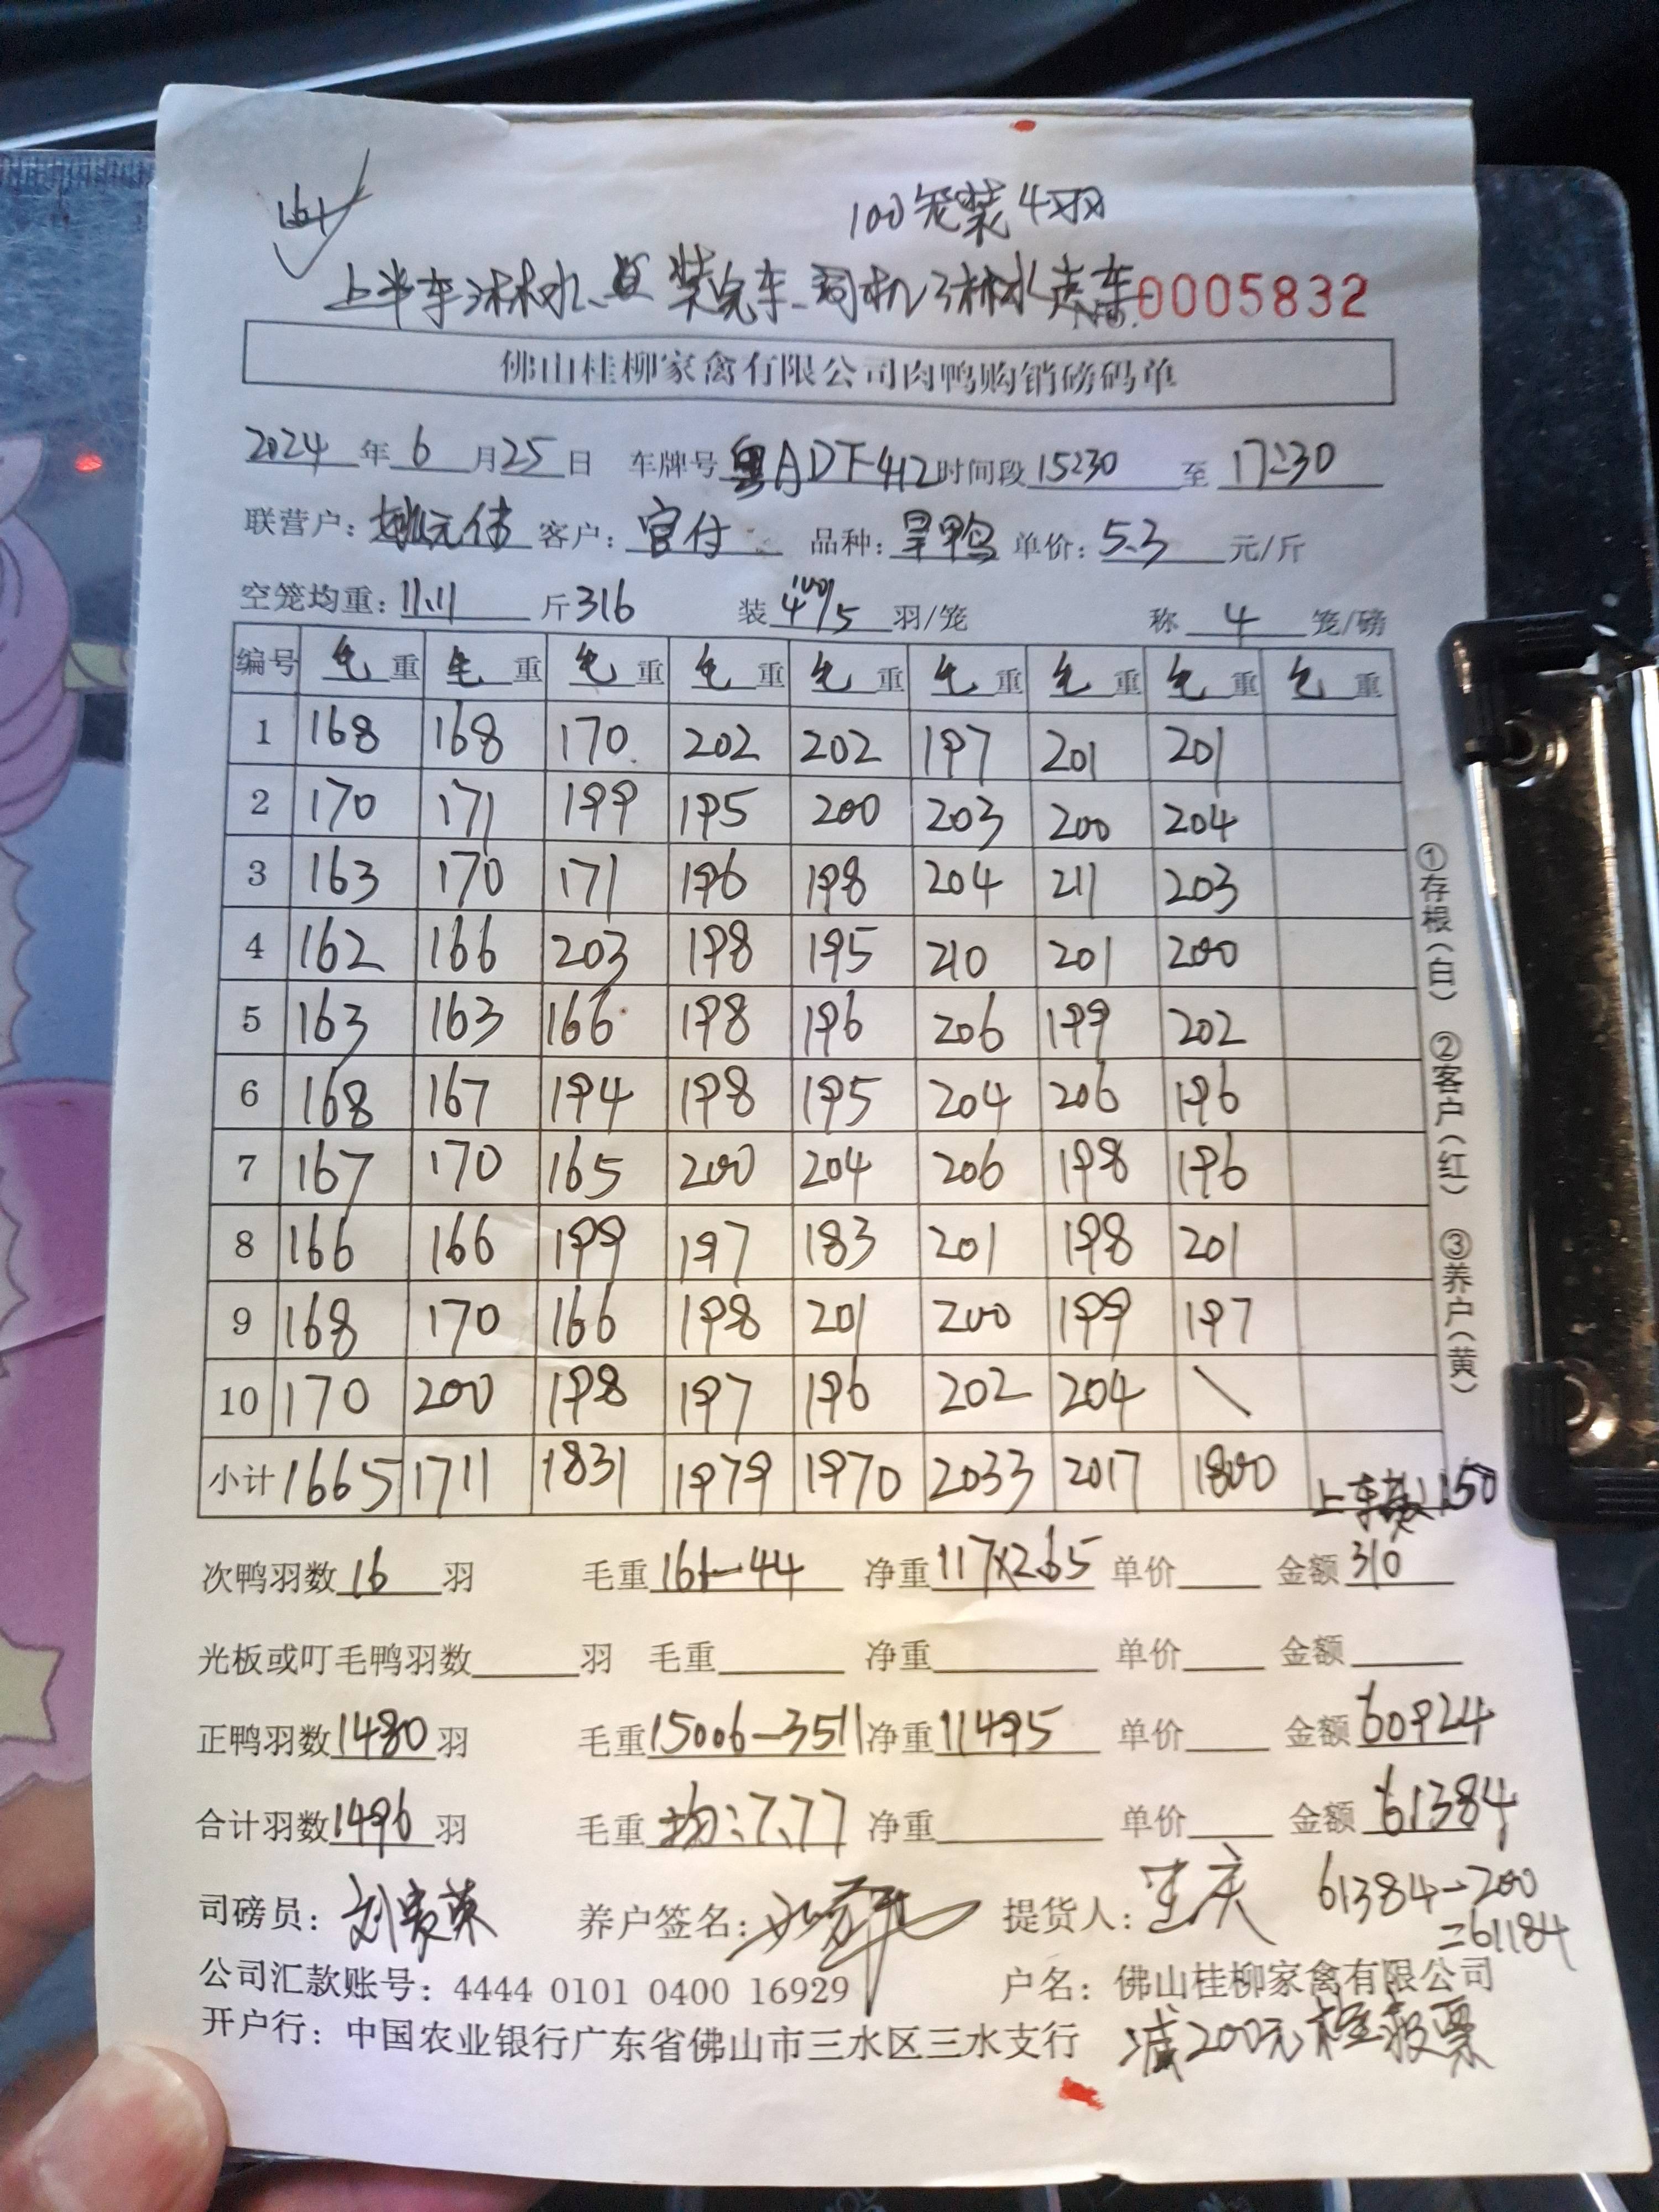 161
100笼装4羽
上半车淋水、装完车、司机淋水走车
No.0005832
佛山桂柳家禽有限公司肉鸭购销磅码单
2024年6月25日 车牌号粤ADF412时间段15:30至17:30
联营户: 客户:官付 品种:旱鸭 单价:5.3元/斤
空笼均重:11.11斤316 装4 100/5羽/笼 称4笼/磅
编号 毛重 毛重 毛重 毛重 毛重 毛重 毛重 毛重 毛重
1 168 168 170 202 202 197 201 201
2 170 171 199 195 200 203 200 204
3 163 170 171 196 198 204 211 203
4 162 166 203 198 195 210 201 200
5 163 163 166 198 196 206 199 202
6 168 167 194 198 195 204 206 196
7 167 170 165 200 204 206 198 196
8 166 166 199 197 183 201 198 201
9 168 170 166 198 201 200 199 197
10 170 200 198 197 196 202 204 \
小计 1665 1711 1831 1979 1970 2033 2017 1800
上车费150
次鸭羽数16羽 毛重161-44 净重117×2.65 单价 金额310
光板或叮毛鸭羽数 羽 毛重 净重 单价 金额
正鸭羽数1480羽 毛重15006-3511净重11495 单价 金额60924
合计羽数1496羽 毛重均:7.77 净重 单价 金额61384
司磅员: 养户签名: 提货人: 61384-200
=61184
公司汇款账号:4444 0101 0400 16929 户名:佛山桂柳家禽有限公司
开户行:中国农业银行广东省佛山市三水区三水支行 减200元
①存根(白) ②客户(红) ③养户(黄)